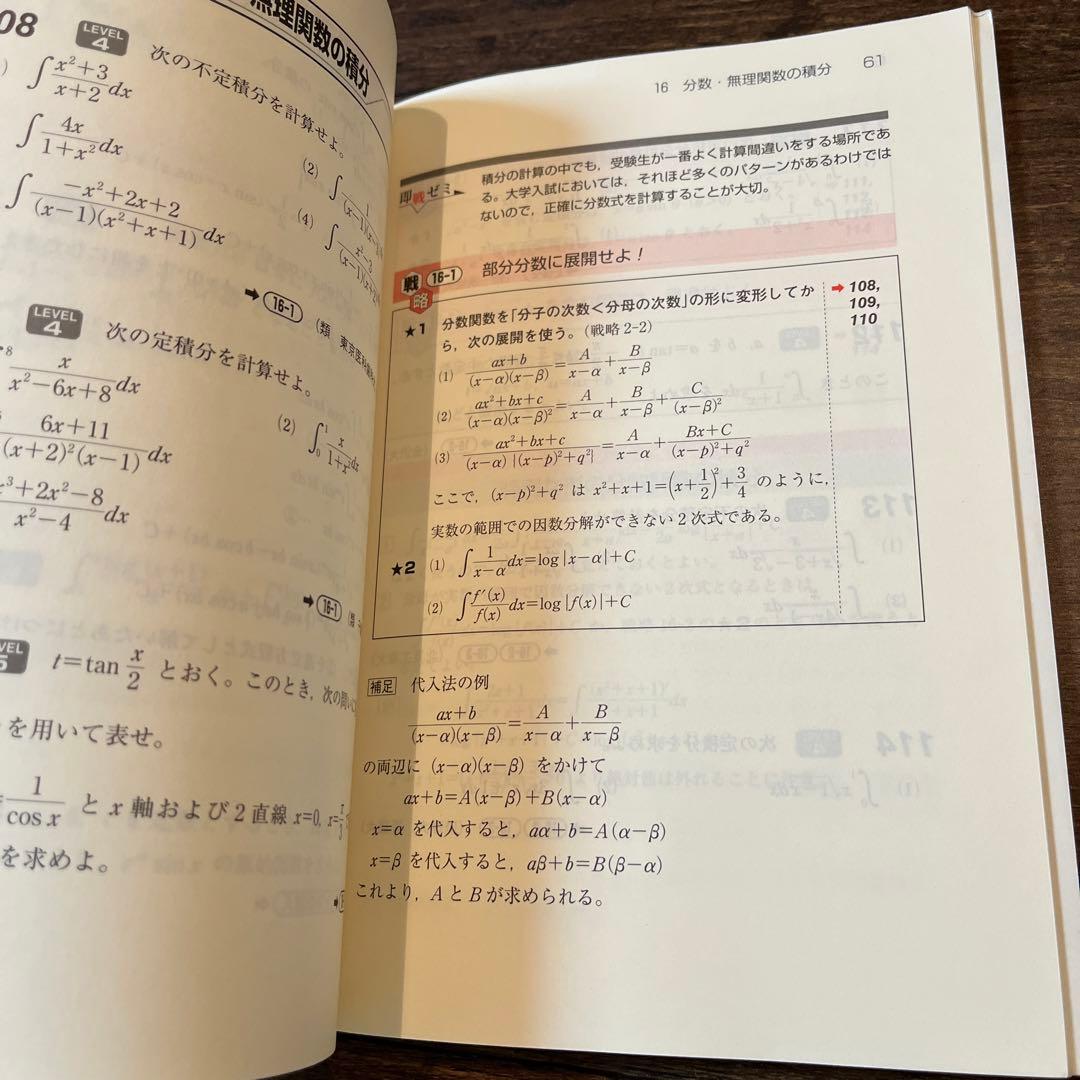 08
LEVEL 4
無理関数の積分
次の不定積分を計算せよ。
∫ x²+3 / x+2 dx
(2) ∫ 1 / (x−1)(x
∫ 4x / 1+x² dx
(4) ∫ x²−3 / (x−1)(x+2)
∫ −x²+2x+2 / (x−1)(x²+x+1) dx
➡ 16-1 (類 東京医科
LEVEL 4
次の定積分を計算せよ。
8
x / x²−6x+8 dx
(2) ∫₀¹ x / 1+x² dx
6x+11 / (x+2)²(x−1) dx
³+2x²−8 / x²−4 dx
➡ 16-1
5
t=tan x/2 とおく。このとき，次の問い
を用いて表せ。
1 / cos x と x 軸および 2 直線 x=0, x=π/3
を求めよ。
16 分数・無理関数の積分 61
即戦ゼミ
積分の計算の中でも，受験生が一番よく計算間違いをする場所であ
る。大学入試においては，それほど多くのパターンがあるわけでは
ないので，正確に分数式を計算することが大切。
戦略 16-1 部分分数に展開せよ！
★1 分数関数を「分子の次数＜分母の次数」の形に変形してか
ら，次の展開を使う。（戦略 2-2）
➡ 108,
109,
110
(1) ax+b / (x−α)(x−β) = A / x−α + B / x−β
(2) ax²+bx+c / (x−α)(x−β)² = A / x−α + B / x−β + C / (x−β)²
(3) ax²+bx+c / (x−α){(x−p)²+q²} = A / x−α + Bx+C / (x−p)²+q²
ここで，(x−p)²+q² は x²+x+1=(x+1/2)²+3/4 のように，
実数の範囲での因数分解ができない 2 次式である。
★2 (1) ∫ 1 / x−α dx=log|x−α|+C
(2) ∫ f′(x) / f(x) dx=log|f(x)|+C
補足 代入法の例
ax+b / (x−α)(x−β) = A / x−α + B / x−β
の両辺に (x−α)(x−β) をかけて
ax+b=A(x−β)+B(x−α)
x=α を代入すると，aα+b=A(α−β)
x=β を代入すると，aβ+b=B(β−α)
これより，A と B が求められる。